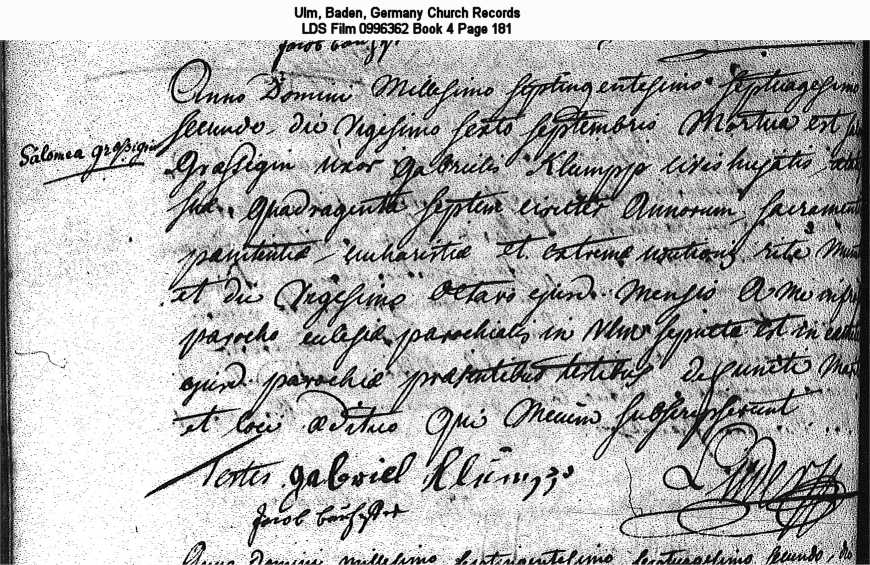 Ulm, Baden, Germany Church Records
LDS Film 0996362 Book 4 Page 181
Anno Domini Millesimo septingentesimo septuagesimo
secundo die Vigesimo sexto septembris Mortua est
Salomea Graßigin
Grassegin uxor gabrielis Klumpp civis hujatis
suæ quadraginta septem circiter Annorum, sacrament
pænitentiæ eucharistiæ et extremæ unctionis rite
et die Vigesimo octavo ejusd. Mensis a me
parocho eclesiæ parochialis in Ulm sepulta est in
ejusd. parochiæ præsentibus testibus defuncti
et loci ædituo qui Mecum subscripserunt
Testes gabriel Klümpp
Jacob
Anno domini millesimo septingentesimo septuagesimo secundo, die